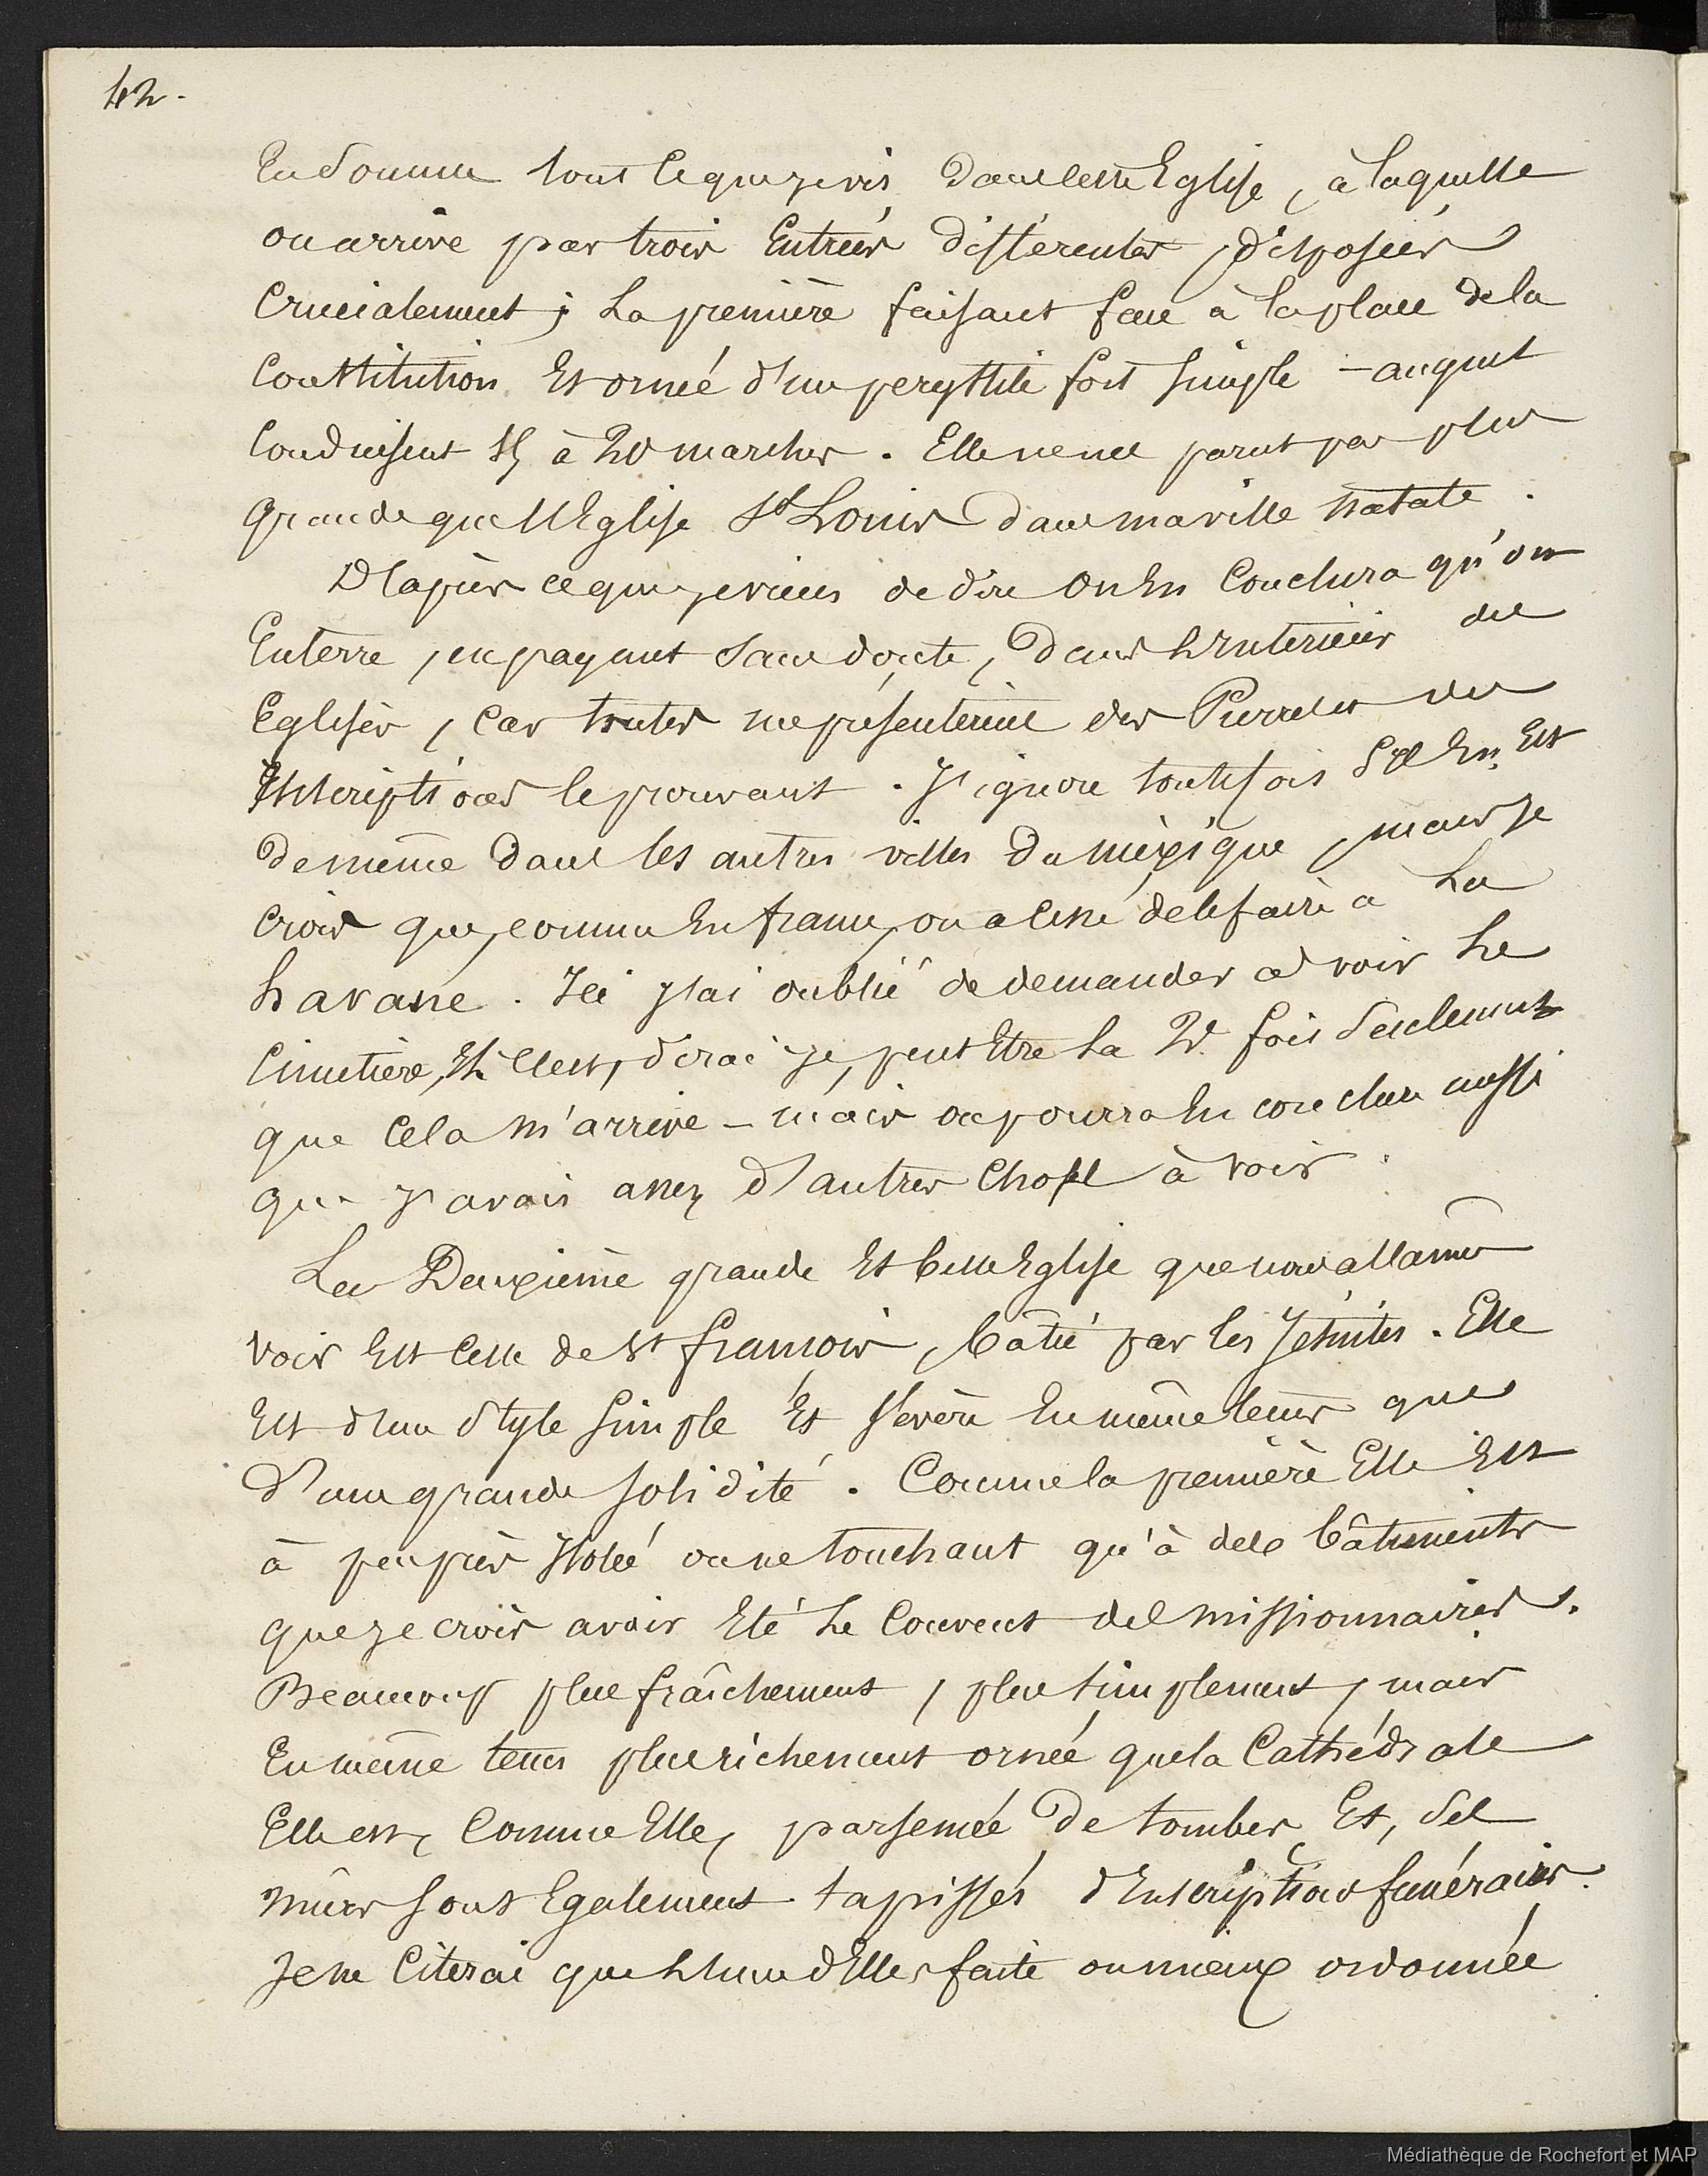 42.
En somme tout ce que je vis dans cette Eglise, à laquelle
on arrive par trois Entrées différentes, disposées
Crucialement; La première faisant face à la place de la
Constitution Est ornée d'un perystile fort simple - auquel
Conduisent 15 à 20 marches. Elle ne me parut pas plus
grande que l'Eglise St Louis dans ma ville natale.
D'après ce que je viens de dire on En Conclura qu'on
Enterre, en payant sans doute, dans l'Intérieur des
Eglises, Car toutes me présentèrent des Pierres et des
Inscriptions le prouvant. J'ignore toutefois s'il En Est
de même dans les autres villes du Méxique, mais je
Crois que, comme En france, on a cessé de le faire à La
havane. Ici j'ai oublié de demander à voir Le
Cimetière, Et C'est, dirai-je, peut Etre La 2e fois seulement
que Cela m'arrive - mais on pourra En conclure aussi
que j'avais assez d'autres Choses à voir.
La Deuxième grande Et belle Eglise que nous allâmes
voir Est Celle de St françois, bâtie par les Jésuites. Elle
Est d'un style simple Et sévère En même tems que
d'une grande solidité. Comme la première Elle Est
à peu près Isolée ou ne touchant qu'à des bâtiments
que je crois avoir Eté Le Couvent des missionnaires.
Beaucoup plus fraîchement, plus simplement, mais
En même tems plus richement ornée que la Cathédrale
Elle est, Comme Elle, parsemée de tombes Et, ses
mûrs sont Egalement tapissés d'Inscriptions funéraires.
Je ne Citerai que L'une d'Elles faite ou mieux ordonnée
Médiathèque de Rochefort et MAP